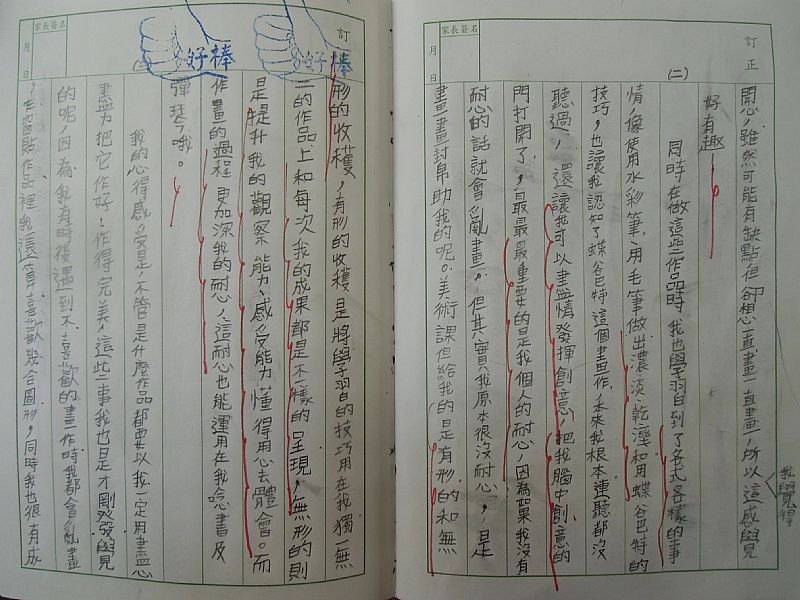 訂正
家長簽名
月 日
(二)
開心，雖然可能有缺點但卻想一直畫一直畫，所以這感覺
我覺得
好有趣
同時在做這些作品時我也學習到了各式各樣的事
情，像使用水彩筆、用毛筆做出濃、淡、乾、溼和用蝶谷巴特的
技巧，也讓我認知了蝶谷巴特這個畫作，本來我根本連聽都沒
聽過，還讓我可以盡情發揮創意，把我腦中創意的
門打開了，最最最重要的是我個人的耐心，因為如果我沒有
耐心的話就會亂畫，但其實我原本很沒耐心，是
畫畫幫助我的呢。美術課但給我的是有形的和無
訂
家長簽名
月 日
好棒
好棒
形的收穫，有形的收穫是將學習的技巧用在我獨一無
二的作品上和每次我的成果都是不一樣的呈現，無形的則
是提升我的觀察能力、感受能力，懂得用心去體會。而
作畫的過程更加深我的耐心，這耐心也能運用在我唸書及
彈琴哦。
我的心得感受是，不管是什麼作品都要以我一定用盡心
盡力把它作好、作得完美，這些事我也是才剛發覺
的呢，因為我有時後遇到不喜歡的畫作時我都會亂畫
，作品裡我還算喜歡幾合圖形，同時我也很有成